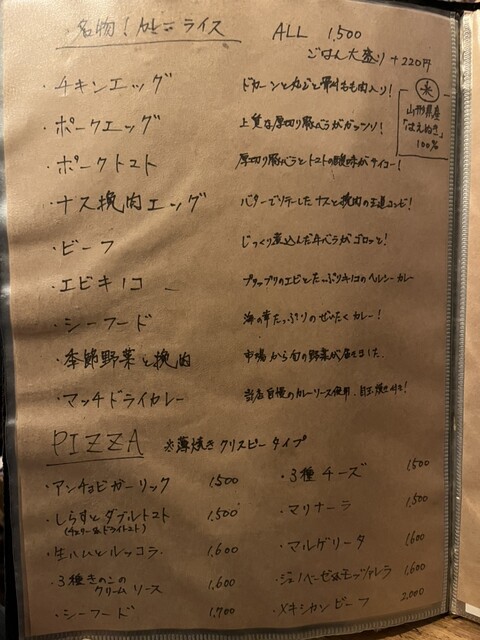 名物！カレーライス
ALL 1,500
ごはん大盛り +220円
米
山形県産
「はえぬき」
100%
・チキンエッグ ドカーンと丸ごと骨付もも肉入り！
・ポークエッグ 上質な厚切り豚バラがガッツリ！
・ポークトマト 厚切り豚バラとトマトの酸味がサイコー！
・ナス挽肉エッグ バターでソテーしたナスと挽肉の王道コンビ！
・ビーフ じっくり煮込んだ牛バラがゴロッと！
・エビキノコ プリップリのエビとたっぷりキノコのヘルシーカレー
・シーフード 海の幸たっぷりのぜいたくカレー！
・季節野菜と挽肉 市場から旬の野菜が届きました
・マッチドライカレー 当店自慢のカレーソース使用、目玉焼き付き！
PIZZA ※薄焼きクリスピータイプ
・アンチョビガーリック 1,500
・しらすとダブルトマト 1,500
(チェリー&ドライトマト)
・生ハムとルッコラ 1,600
・3種きのこの
クリームソース 1,600
・シーフード 1,700
・3種チーズ 1,500
・マリナーラ 1,500
・マルゲリータ 1,600
・ジェノベーゼ&モッツァレラ 1,600
・メキシカンビーフ 2,000